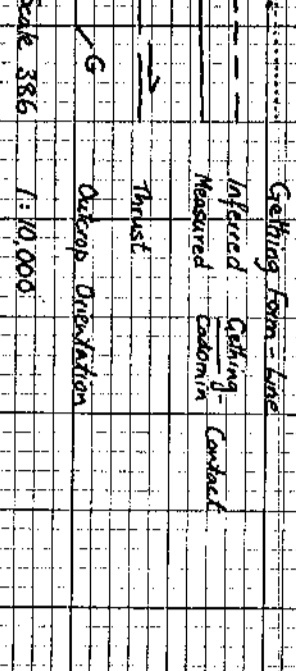 Gething Form-Line
Inferred Gething-
Measured Cadomin Contact
Thrust
G Outcrop Orientation
Scale 386 1:10,000